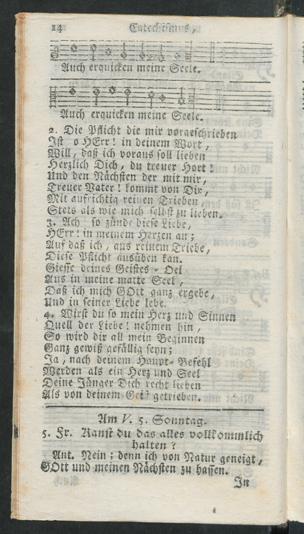 14 Catechismus,
Auch erquicken meine Seele.
Auch erquicken meine Seele.
2. Die Pflicht die mir vorgeschrieben
Ist o HErr! in deinem Wort,
Will, daß ich voraus soll lieben
Herzlich Dich, du treuer Hort!
Und den Nächsten der mit mir,
Treuer Vater! kommt von Dir,
Mit aufrichtig reinen Trieben
Stets als wie mich selbst zu lieben.
3. Ach so zünde diese Liebe,
HErr! in meinem Herzen an;
Auf daß ich, aus reinem Triebe,
Diese Pflicht ausüben kan.
Giesse deines Geistes-Oel
Aus in meine matte Seel,
Daß ich mich GOtt ganz ergebe,
Und in seiner Liebe lebe.
4. Wirst du so mein Herz und Sinnen
Quell der Liebe! nehmen hin,
So wird dir all mein Beginnen
Ganz gewiß gefällig seyn;
Ja, nach deinem Haupt-Befehl
Werden als ein Herz und Seel
Deine Jünger Dich recht lieben
Als von deinem Geist getrieben.
Am V. 5. Sonntag.
5. Fr. Kanst du das alles vollkommlich
halten?
Ant. Nein; denn ich von Natur geneigt,
GOtt und meinen Nächsten zu hassen.
In